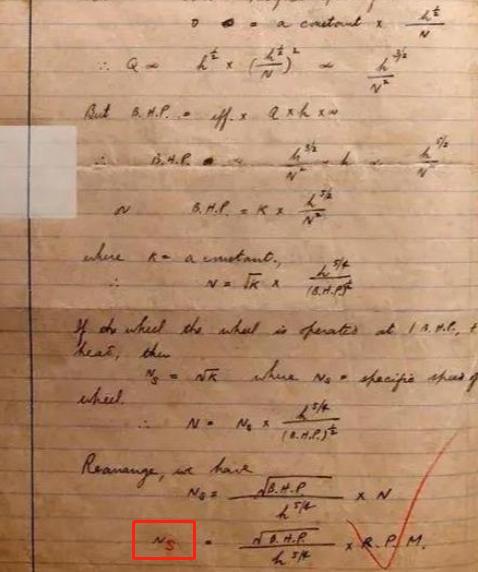 D = a constant × h^½/N
∴ Q ∝ h^½ × (h^½/N)² ∝ h^3/2/N²
But B.H.P. = eff. × Q × h × w
∴ B.H.P. ∝ h^3/2/N² × h ∝ h^5/2/N²
or B.H.P. = K × h^5/2/N²
where K = a constant.,
∴ N = √K × h^5/4/(B.H.P.)^½
If the wheel the wheel is operated at 1 B.H.P.,
head, then
N_s = √K where N_s = specific speed of
wheel.
∴ N = N_s × h^5/4/(B.H.P.)^½
Rearrange, we have
N_s = √B.H.P./h^5/4 × N
N_s = √B.H.P./h^5/4 × R.P.M.